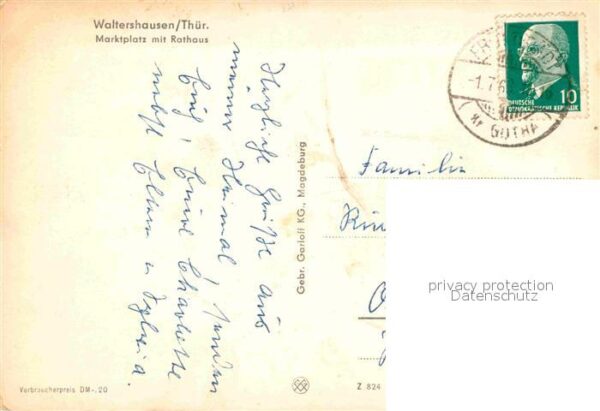 Waltershausen/Thür.
Marktplatz mit Rathaus
Herzliche Grüße aus
meiner Heimat, senden
Euch, Eure Charlotte
nebst Eltern u. Sylvia.
Gebr. Garloff KG., Magdeburg
1.7.6
Kr GOTHA
DEUTSCHE
DEMOKRATISCHE REPUBLIK
10
Familie
privacy protection
Datenschutz
Verbraucherpreis DM -,20
Z 824